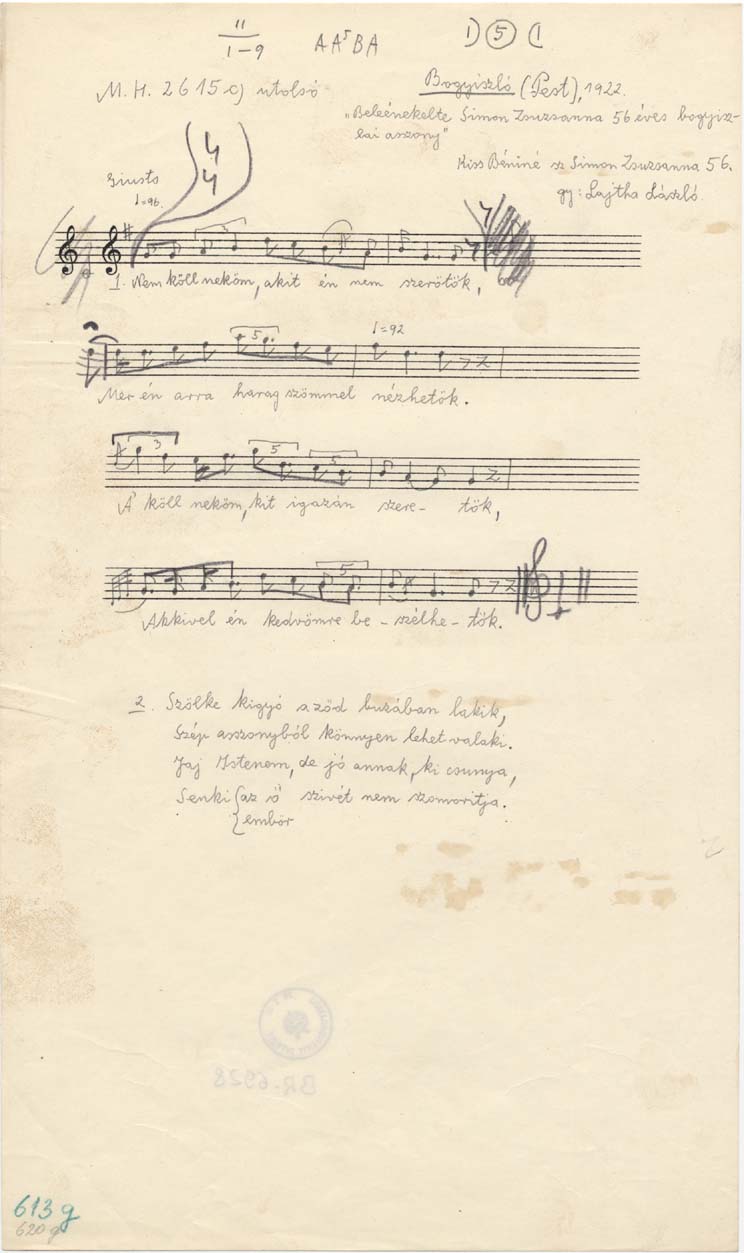 11
1–9
A A⁵ B A
1) (5) (1
M. H. 2615 c) utolsó
Bogyiszló (Pest), 1922.
„Beleénekelte Simon Zsuzsanna 56 éves bogyisz-
lai aszony"
Kiss Béniné sz Simon Zsuzsanna 56.
gy: Lajtha László.
4
4
Giusto
♩=96.
3
1. Nem köll neköm, akit én nem szerötök,
5
♩=92
Mer én arra harag szömmel nézhetök.
3 5 5
A' köll neköm, kit igazán szere- tök,
5
Akkivel én kedvömre be - szélhe- tök.
2. Szölke kigyó a zöd buzában lakik,
Szép asszonyból könnyen lehet valaki.
Jaj Istenem, de jó annak, ki csunya,
Senki {az ő szivét nem szomoritja.
{embör
BR-6928
613 g
620 g